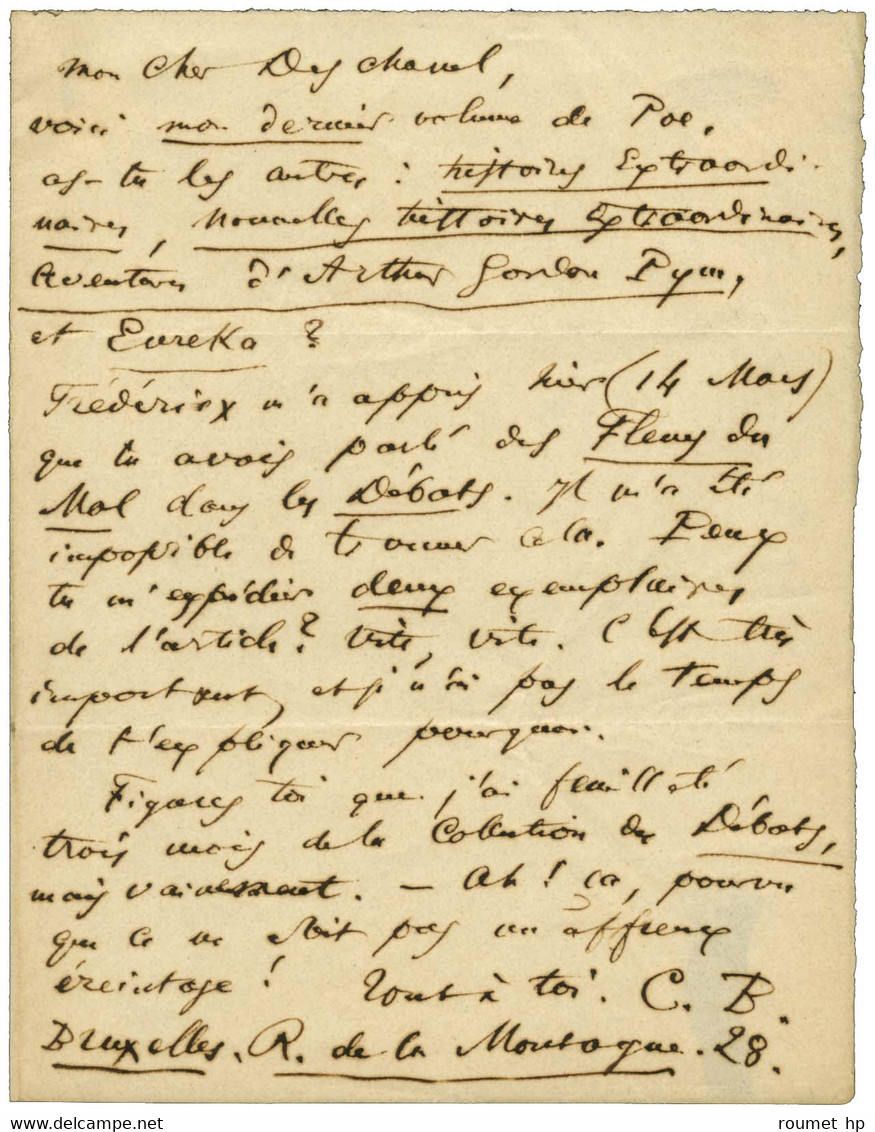 mon cher Deschanel,
voici mon dernier volume de Poe.
as-tu les autres : histoires Extraordi-
naires, Nouvelles histoires Extraordinaires,
Aventures d'Arthur Gordon Pym,
et Eureka ?
Frédérix m'a appris hier (14 Mars)
que tu avais parlé des Fleurs du
Mal dans les Débats. Il m'a été
impossible de trouver cela. Peux
tu m'expédier deux exemplaires
de l'article ? Vite, vite. C'est très
important, et je n'ai pas le temps
de t'expliquer pourquoi.
Figures toi que j'ai feuilleté
trois mois de la Collection des Débats,
mais vainement. - Ah ! ça, pourvu
que ce ne soit pas un affreux
éreintage ! Tout à toi. C. B.
Bruxelles. R. de la Montagne. 28.
roumet hp
delcampe.net